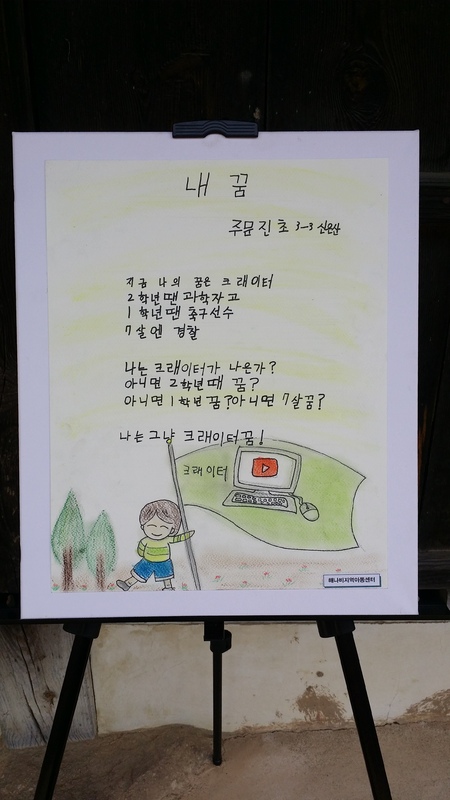 내 꿈
주문진초 3-3 신은산
지금 나의 꿈은 크래이터
2학년땐 과학자고
1학년땐 축구선수
7살엔 경찰
나는 크래이터가 나은가?
아니면 2학년때 꿈?
아니면 1학년 꿈? 아니면 7살꿈?
나는 그냥 크래이터꿈!
크래이터
해나비지역아동센터